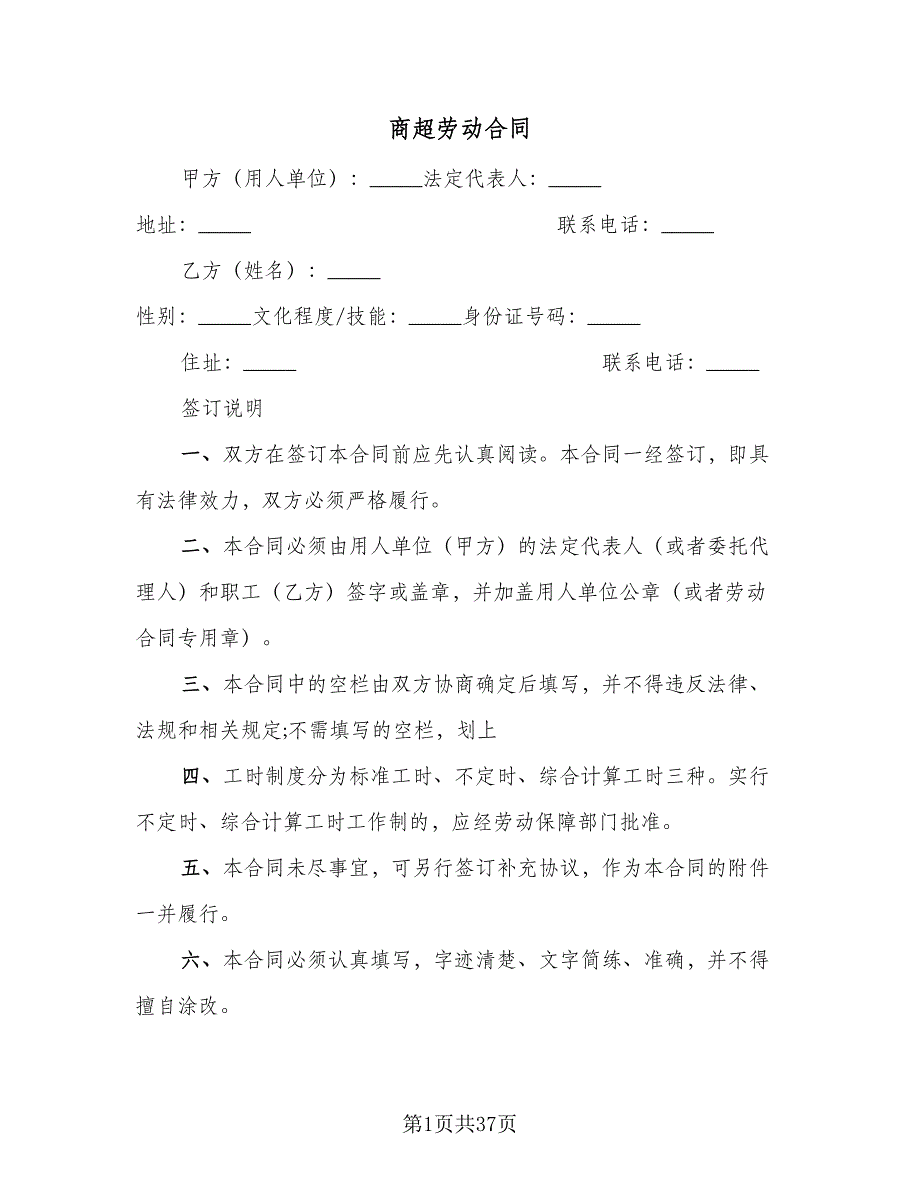 商超劳动合同
甲方（用人单位）：_____法定代表人：_____
地址：_____ 联系电话：_____
乙方（姓名）：_____
性别：_____文化程度/技能：_____身份证号码：_____
住址：_____ 联系电话：_____
签订说明
一、双方在签订本合同前应先认真阅读。本合同一经签订，即具
有法律效力，双方必须严格履行。
二、本合同必须由用人单位（甲方）的法定代表人（或者委托代
理人）和职工（乙方）签字或盖章，并加盖用人单位公章（或者劳动
合同专用章）。
三、本合同中的空栏由双方协商确定后填写，并不得违反法律、
法规和相关规定;不需填写的空栏，划上
四、工时制度分为标准工时、不定时、综合计算工时三种。实行
不定时、综合计算工时工作制的，应经劳动保障部门批准。
五、本合同未尽事宜，可另行签订补充协议，作为本合同的附件
一并履行。
六、本合同必须认真填写，字迹清楚、文字简练、准确，并不得
擅自涂改。
第1页共37页